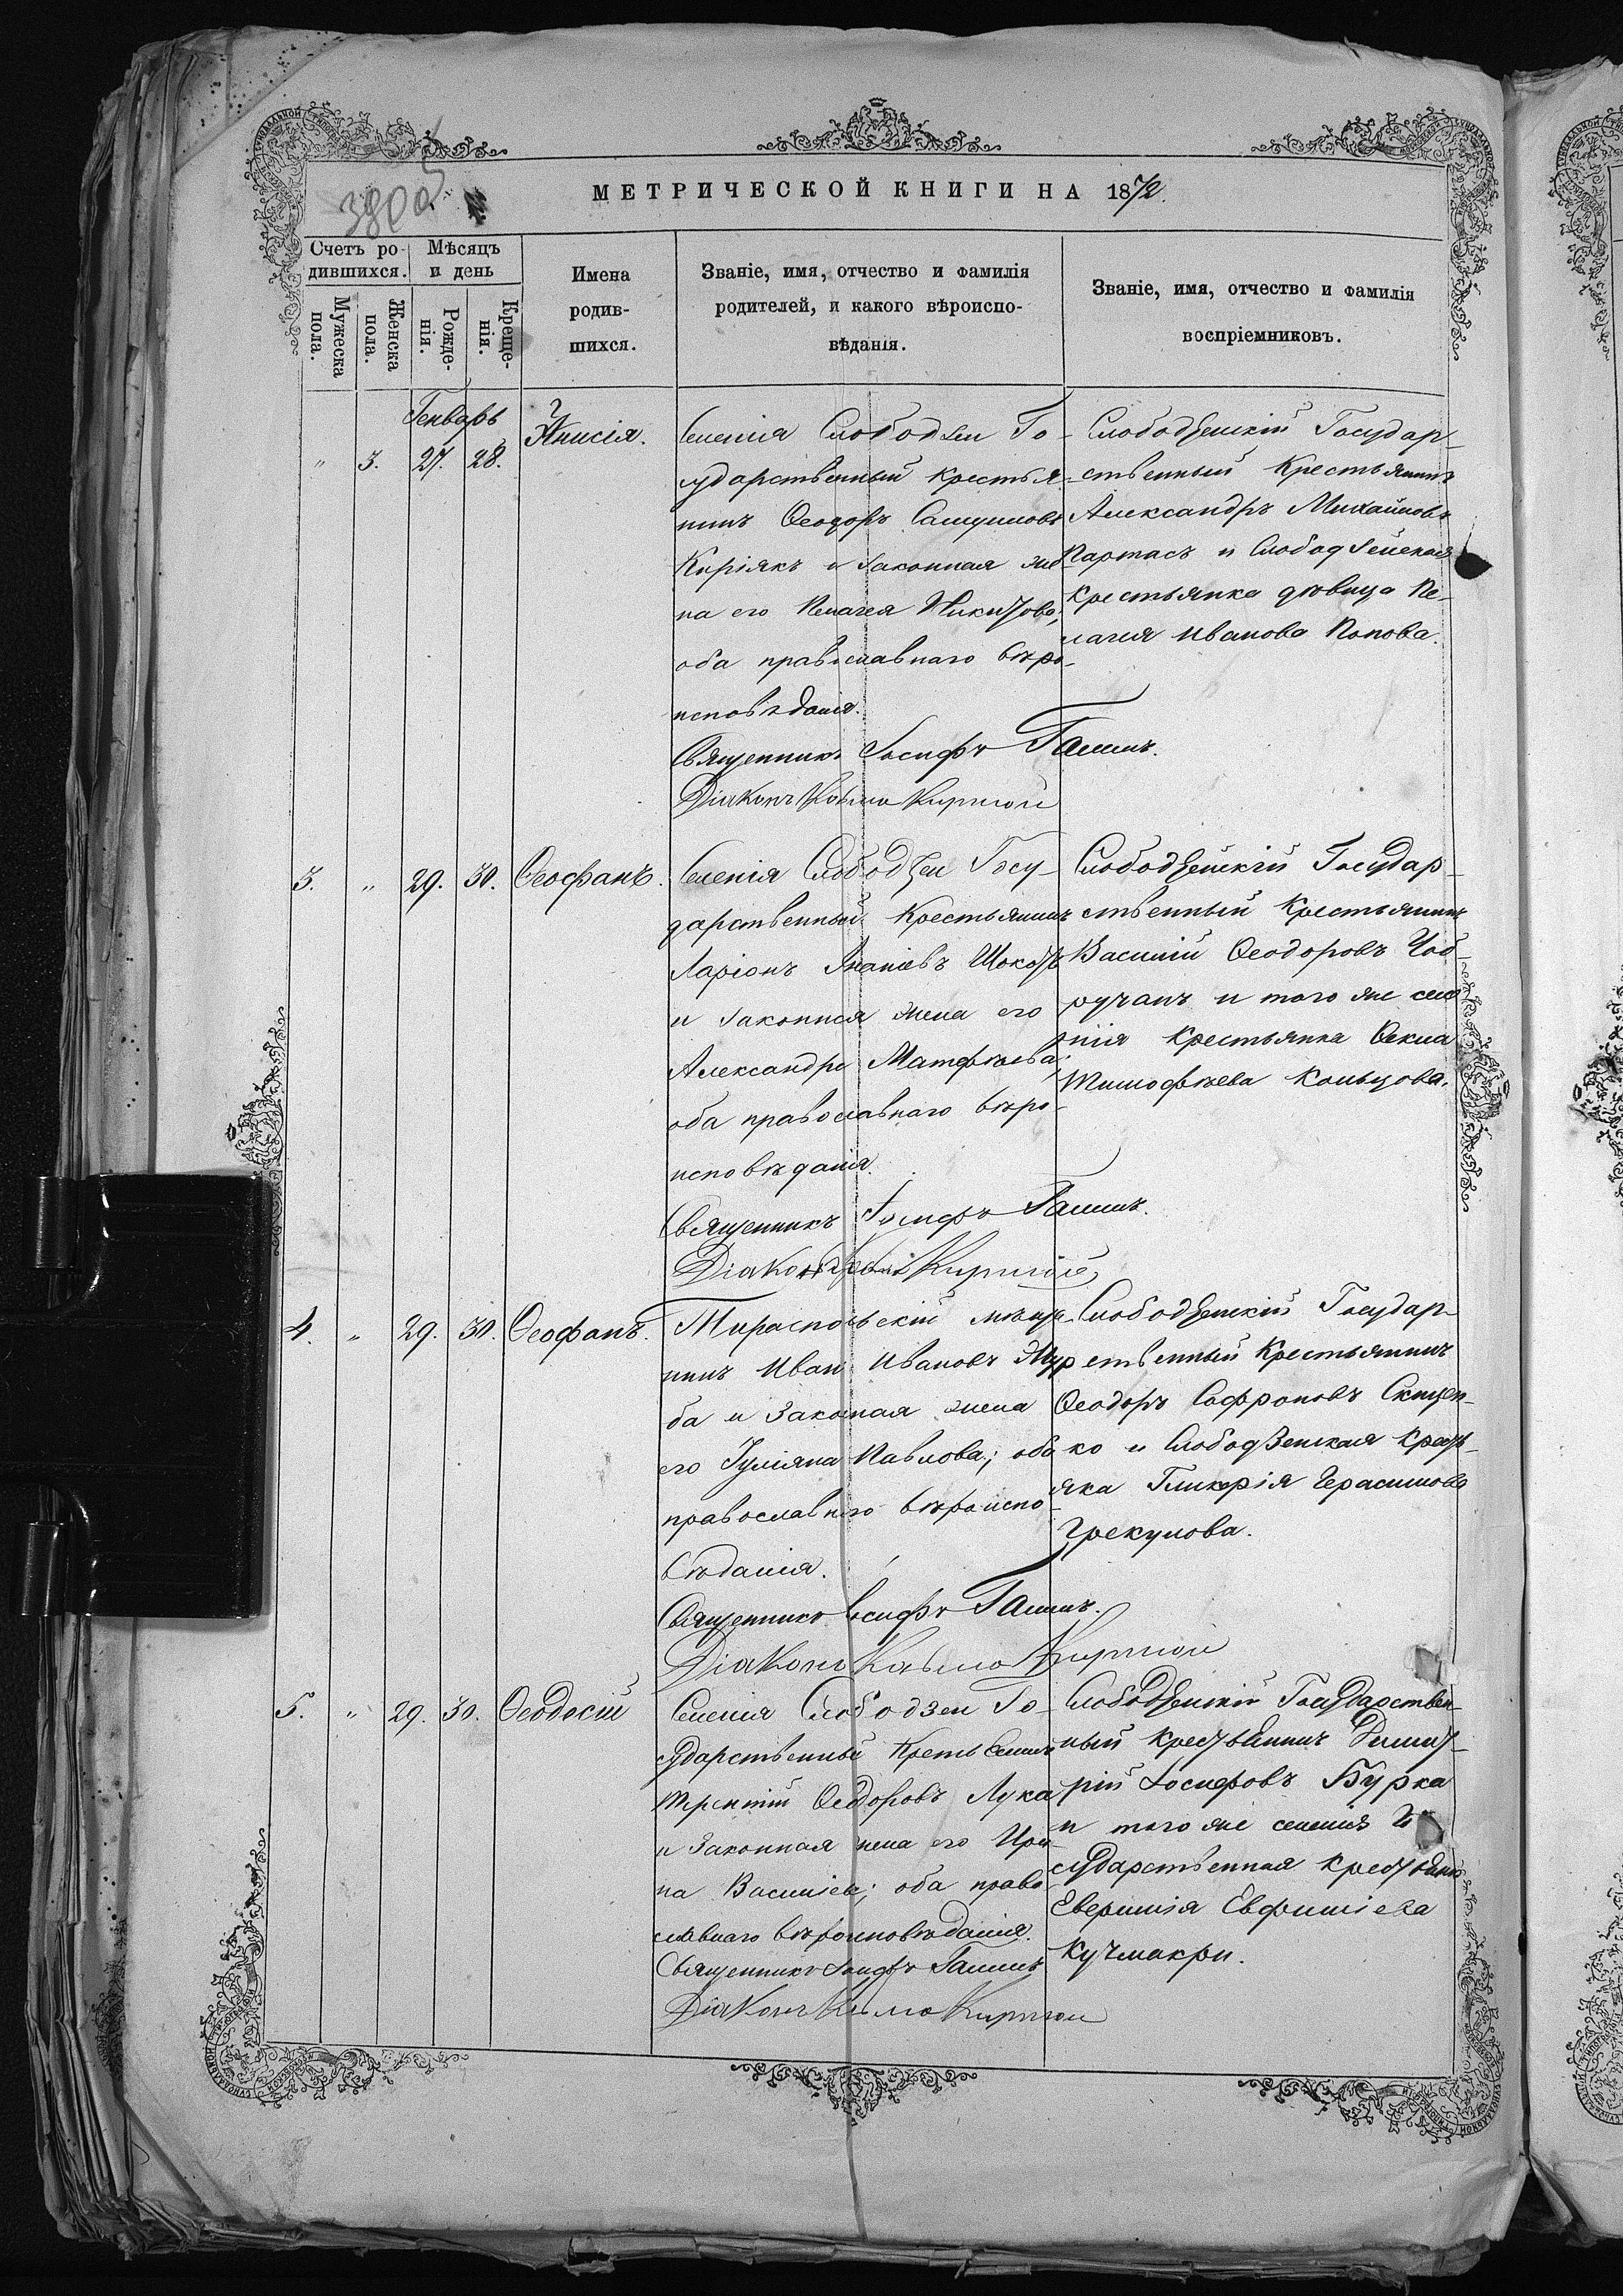 3800
МЕТРИЧЕСКОЙ КНИГИ НА 1872.
Счетъ ро-
дившихся.
Мѣсяцъ
и день
Мужеска
пола.
Женска
пола.
Рожде-
нія.
Креще-
нія.
Имена
родив-
шихся.
Званіе, имя, отчество и фамилія
родителей, и какого вѣроиспо-
вѣданія.
Званіе, имя, отчество и фамилія
воспріемниковъ.
Генварь
" 3. 27. 28.
Анисія.
Селенія Слободзеи Го-
сударственный крестья-
нинъ Ѳеодоръ Самуиловъ
Киріякъ и законная же-
на его Пелагея Никитова;
оба православнаго вѣро-
исповѣданія.
Священникъ Іосифъ
Діаконъ Козьма
Слободзейскій Государ-
ственный Крестьянинъ
Александръ Михайловъ
Партасъ и Слободзейская
крестьянка дѣвица Пе-
лагея Иванова Попова.
3. " 29. 30. Ѳеофанъ.
Селенія Слободзеи Госу-
дарственный Крестьянинъ
Ларіонъ
и законная жена его
Александра Матфѣева;
оба православнаго вѣро-
исповѣданія.
Священникъ Іосифъ
Діаконъ
Слободзейскій Государ-
ственный Крестьянинъ
Василій Ѳеодоровъ Чоб-
ручанъ и того же селе-
нія крестьянка Ѳекла
Тимофѣева Кольцова.
4. " 29. 30. Ѳеофанъ.
Тираспольскій мѣща-
нинъ Иванъ Ивановъ
и законная жена
его Іуліяна Павлова; оба
православнаго вѣроиспо-
вѣданія.
Священникъ Іосифъ
Діаконъ Козьма
Слободзейскій Государ-
ственный Крестьянинъ
Ѳеодоръ Софроновъ
и Слободзейская крестья-
Гликерія Герасимова
Грекулова.
5. " 29. 30. Ѳеодосій
Селенія Слободзеи Го-
сударственный Крестьянинъ
Терентій Ѳеодоровъ Лука
и законная жена его Ири-
на Василіева; оба право-
славнаго вѣроисповѣданія.
Священникъ Іосифъ
Діаконъ Козьма
Слободзейскій Государствен-
ный крестьянинъ Димит-
рій Іосифовъ Бурка
и того же селенія Го-
сударственная крестьянка
Евфиміева
Кучмакри.